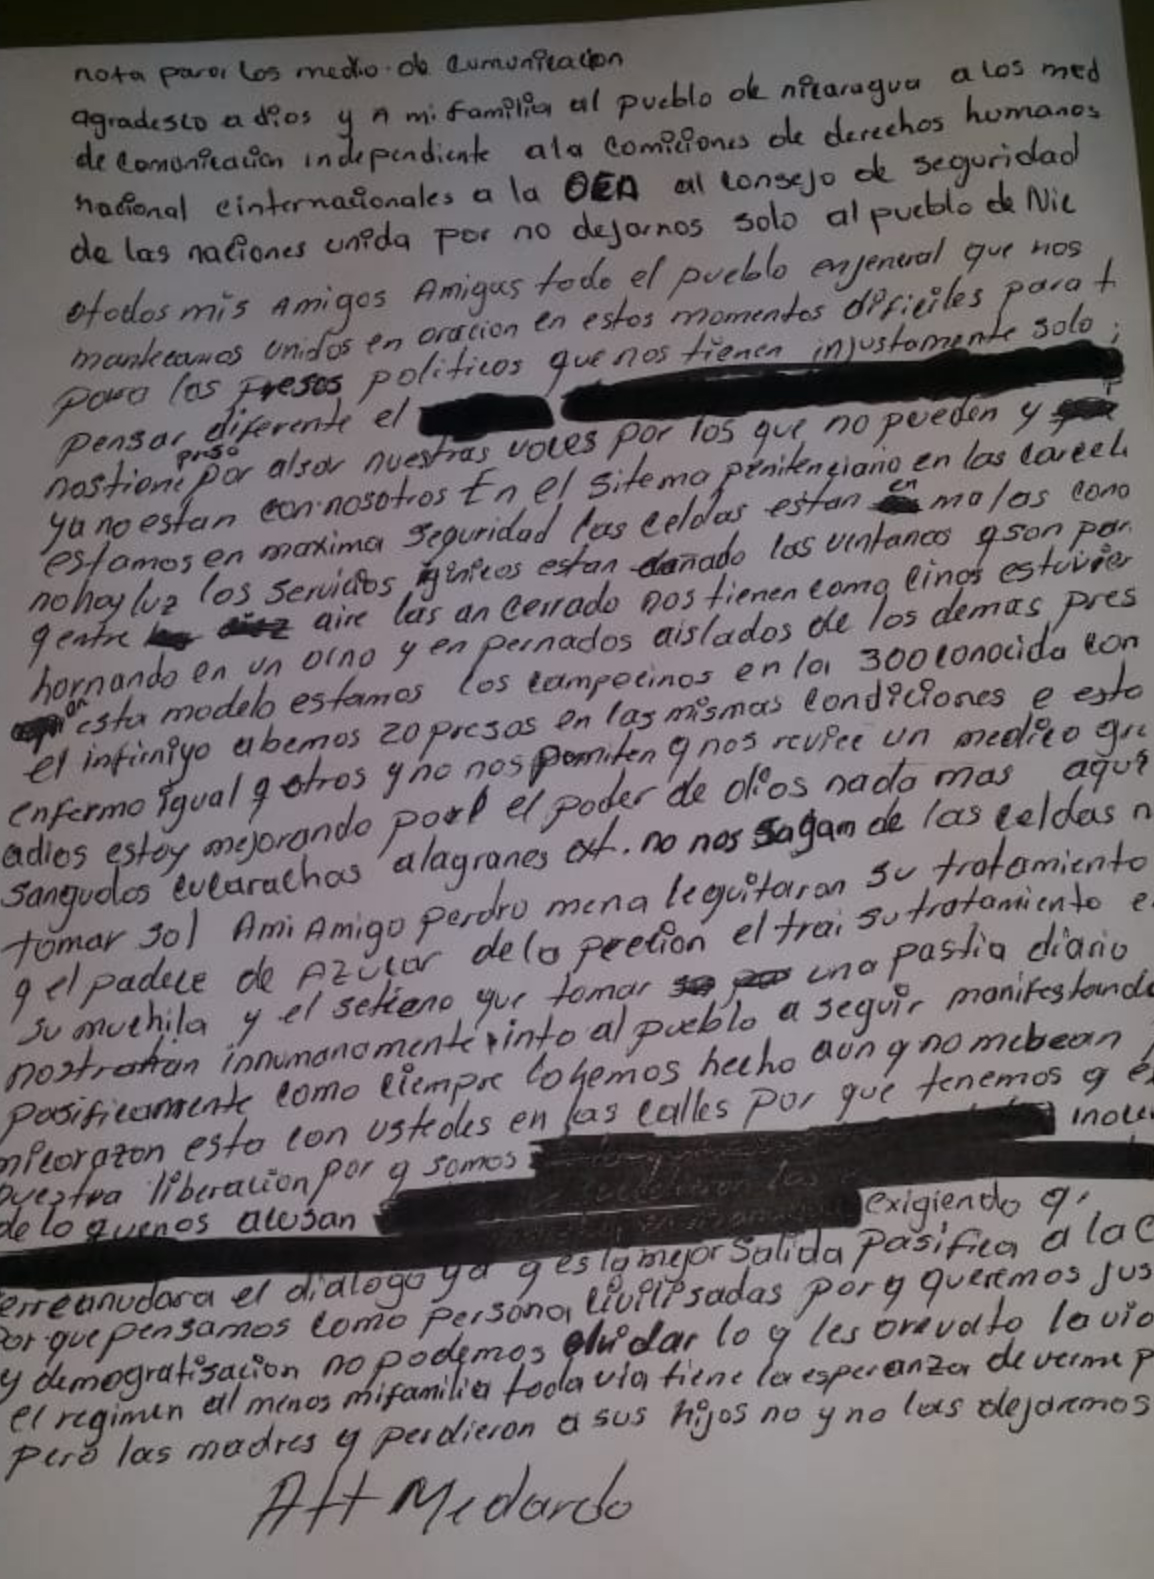 nota para los medio de cumunicacion
agradesco a dios y A mi familia al pueblo de nicaragua a los med
de comonicacion independiente ala comiciones de derechos humanos
nacional einternacionales a la OEA al consejo de seguridad
de las naciones unida por no dejarnos solo al pueblo de Nic
atodos mis Amigos Amigas todo el pueblo enjeneral que nos
mantecamos unidos en oracion en estos momentos dificiles para t
para los presos politicos que nos tienen injustamente solo
pensar diferente el
nostiene preso por alsar nuestras voces por los que no pueden y
ya no estan con nosotros En el sitema penitenciario en las carcel
estamos en maxima seguridad las celdas estan en malas cono
no hay luz los servicios iginicos estan dañado las ventanas q son par
q entre aire las an cerrado nos tienen como cinos estuvier
hornando en un orno y en pernados aislados de los demas pres
esta modelo estamos los campecinos en la 300 conocida con
el infirniyo abemos 20 presos en las mismas condiciones e esto
enfermo igual q otros y no nos pomiten q nos revice un medico gra
adios estoy mejorando por el poder de dios nada mas aqui
sangudos cucarachas alagranes ext. no nos sagam de las celdas n
tomar sol Ami Amigo perdro mena le quitaron su tratamiento
q el padece de Azucar de la precion el trai su tratamiento e
su muchila y el setieno que tomar una pastia diario
nostratan innumanamente into al pueblo a seguir manifestando
pasificamente como ciempre lo hemos hecho aun q no mebean
micorazon esta con ustedes en las calles por que tenemos q e
nuestra liberacion por q somos inoce
de lo quenos acusan exigiendo q
erreanudara el dialogo ya q es la mejor salida pasifica a la c
por que pensamos como persona civilisadas por q queremos jus
y demogratisacion no podemos olvidar lo q les arevato la vio
el regimen al menos mifamilia toda via tiene la esperanza de verme p
pero las madres q perdieron a sus hijos no y no las dejaremos
Att Medardo